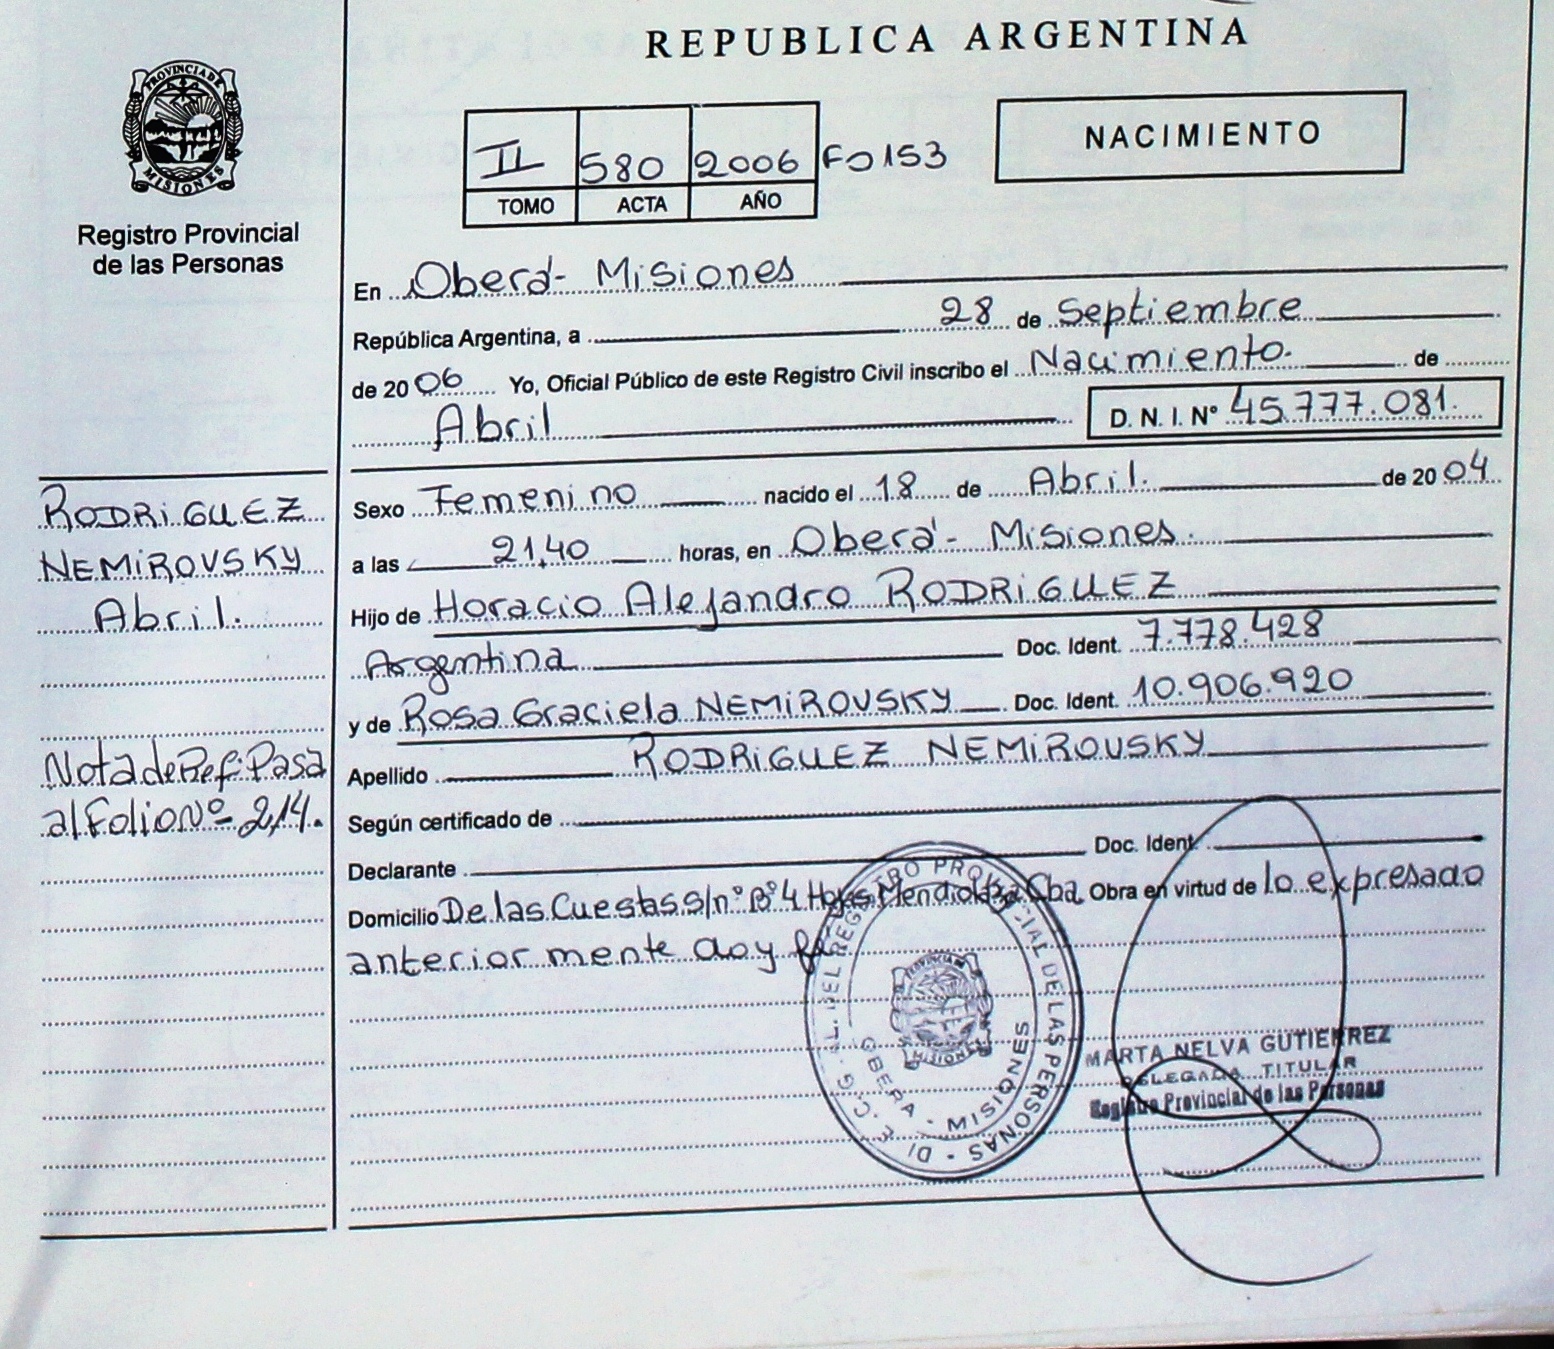 REPUBLICA ARGENTINA
PROVINCIA DE
MISIONES
Registro Provincial
de las Personas
II 580 2006 Fo 153
TOMO ACTA AÑO
NACIMIENTO
En Oberá - Misiones
República Argentina, a 28 de Septiembre
de 2006 Yo, Oficial Público de este Registro Civil inscribo el Nacimiento. de
Abril D. N. I. Nº 45.777.081.
RODRIGUEZ
NEMIROVSKY
Abril.
Sexo Femenino nacido el 18 de Abril. de 2004
a las 21,40 horas, en Oberá - Misiones.
Hijo de Horacio Alejandro RODRIGUEZ
Argentina Doc. Ident. 7.778.428
y de Rosa Graciela NEMIROVSKY Doc. Ident. 10.906.920
Apellido RODRIGUEZ NEMIROVSKY
Nota de Ref: Pasa
al Folio Nº 214.
Según certificado de
Declarante Doc. Ident.
Domicilio De las Cuestas s/nº Bº 4 Hojas Mendiolaza Cba Obra en virtud de lo expresado
anteriormente doy fé
REGISTRO PROVINCIAL DE LAS PERSONAS
PROVINCIA DE
MISIONES
OBERA - MISIONES
MARTA NELVA GUTIERREZ
DELEGADA TITULAR
Registro Provincial de las Personas